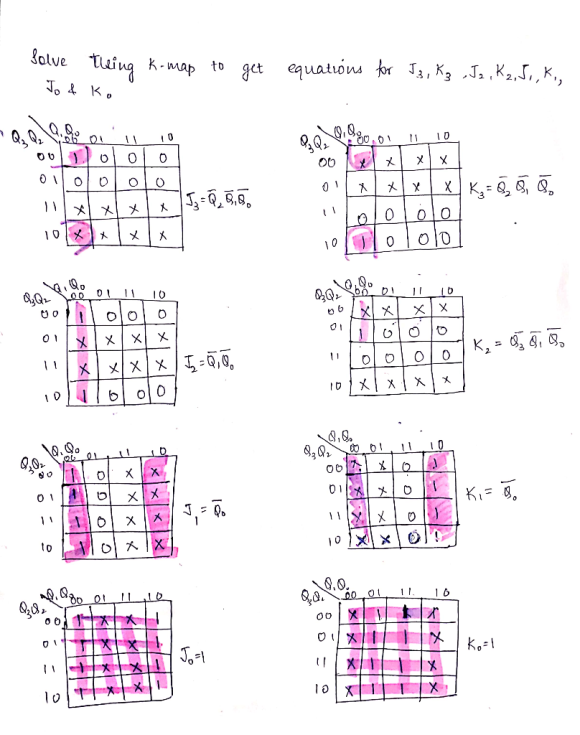 Solve Using K-map to get equations for J₃, K₃, J₂, K₂, J₁, K₁,
J₀ & K₀
Q₃Q₂ Q₁Q₀ 00 01 11 10
00 1 0 0 0
01 0 0 0 0
11 x x x x
10 x x x x
J₃ = Q̄₂ Q̄₁ Q̄₀
Q₃Q₂ Q₁Q₀ 00 01 11 10
00 x x x x
01 x x x x
11 0 0 0 0
10 1 0 0 0
K₃ = Q̄₂ Q̄₁ Q̄₀
Q₃Q₂ Q₁Q₀ 00 01 11 10
00 1 0 0 0
01 x x x x
11 x x x x
10 1 0 0 0
J₂ = Q̄₁Q̄₀
Q₃Q₂ Q₁Q₀ 00 01 11 10
00 x x x x
01 1 0 0 0
11 0 0 0 0
10 x x x x
K₂ = Q̄₃ Q̄₁ Q̄₀
Q₃Q₂ Q₁Q₀ 00 01 11 10
00 1 0 x x
01 1 0 x x
11 1 0 x x
10 1 0 x x
J₁ = Q̄₀
Q₃Q₂ Q₁Q₀ 00 01 11 10
00 x x 0 1
01 x x 0 1
11 x x 0 1
10 x x 0 1
K₁ = Q̄₀
Q₃Q₂ Q₁Q₀ 00 01 11 10
00 1 x x 1
01 1 x x 1
11 1 x x 1
10 1 x x 1
J₀ = 1
Q₃Q₂ Q₁Q₀ 00 01 11 10
00 x 1 1 x
01 x 1 1 x
11 x 1 1 x
10 x 1 1 x
K₀ = 1